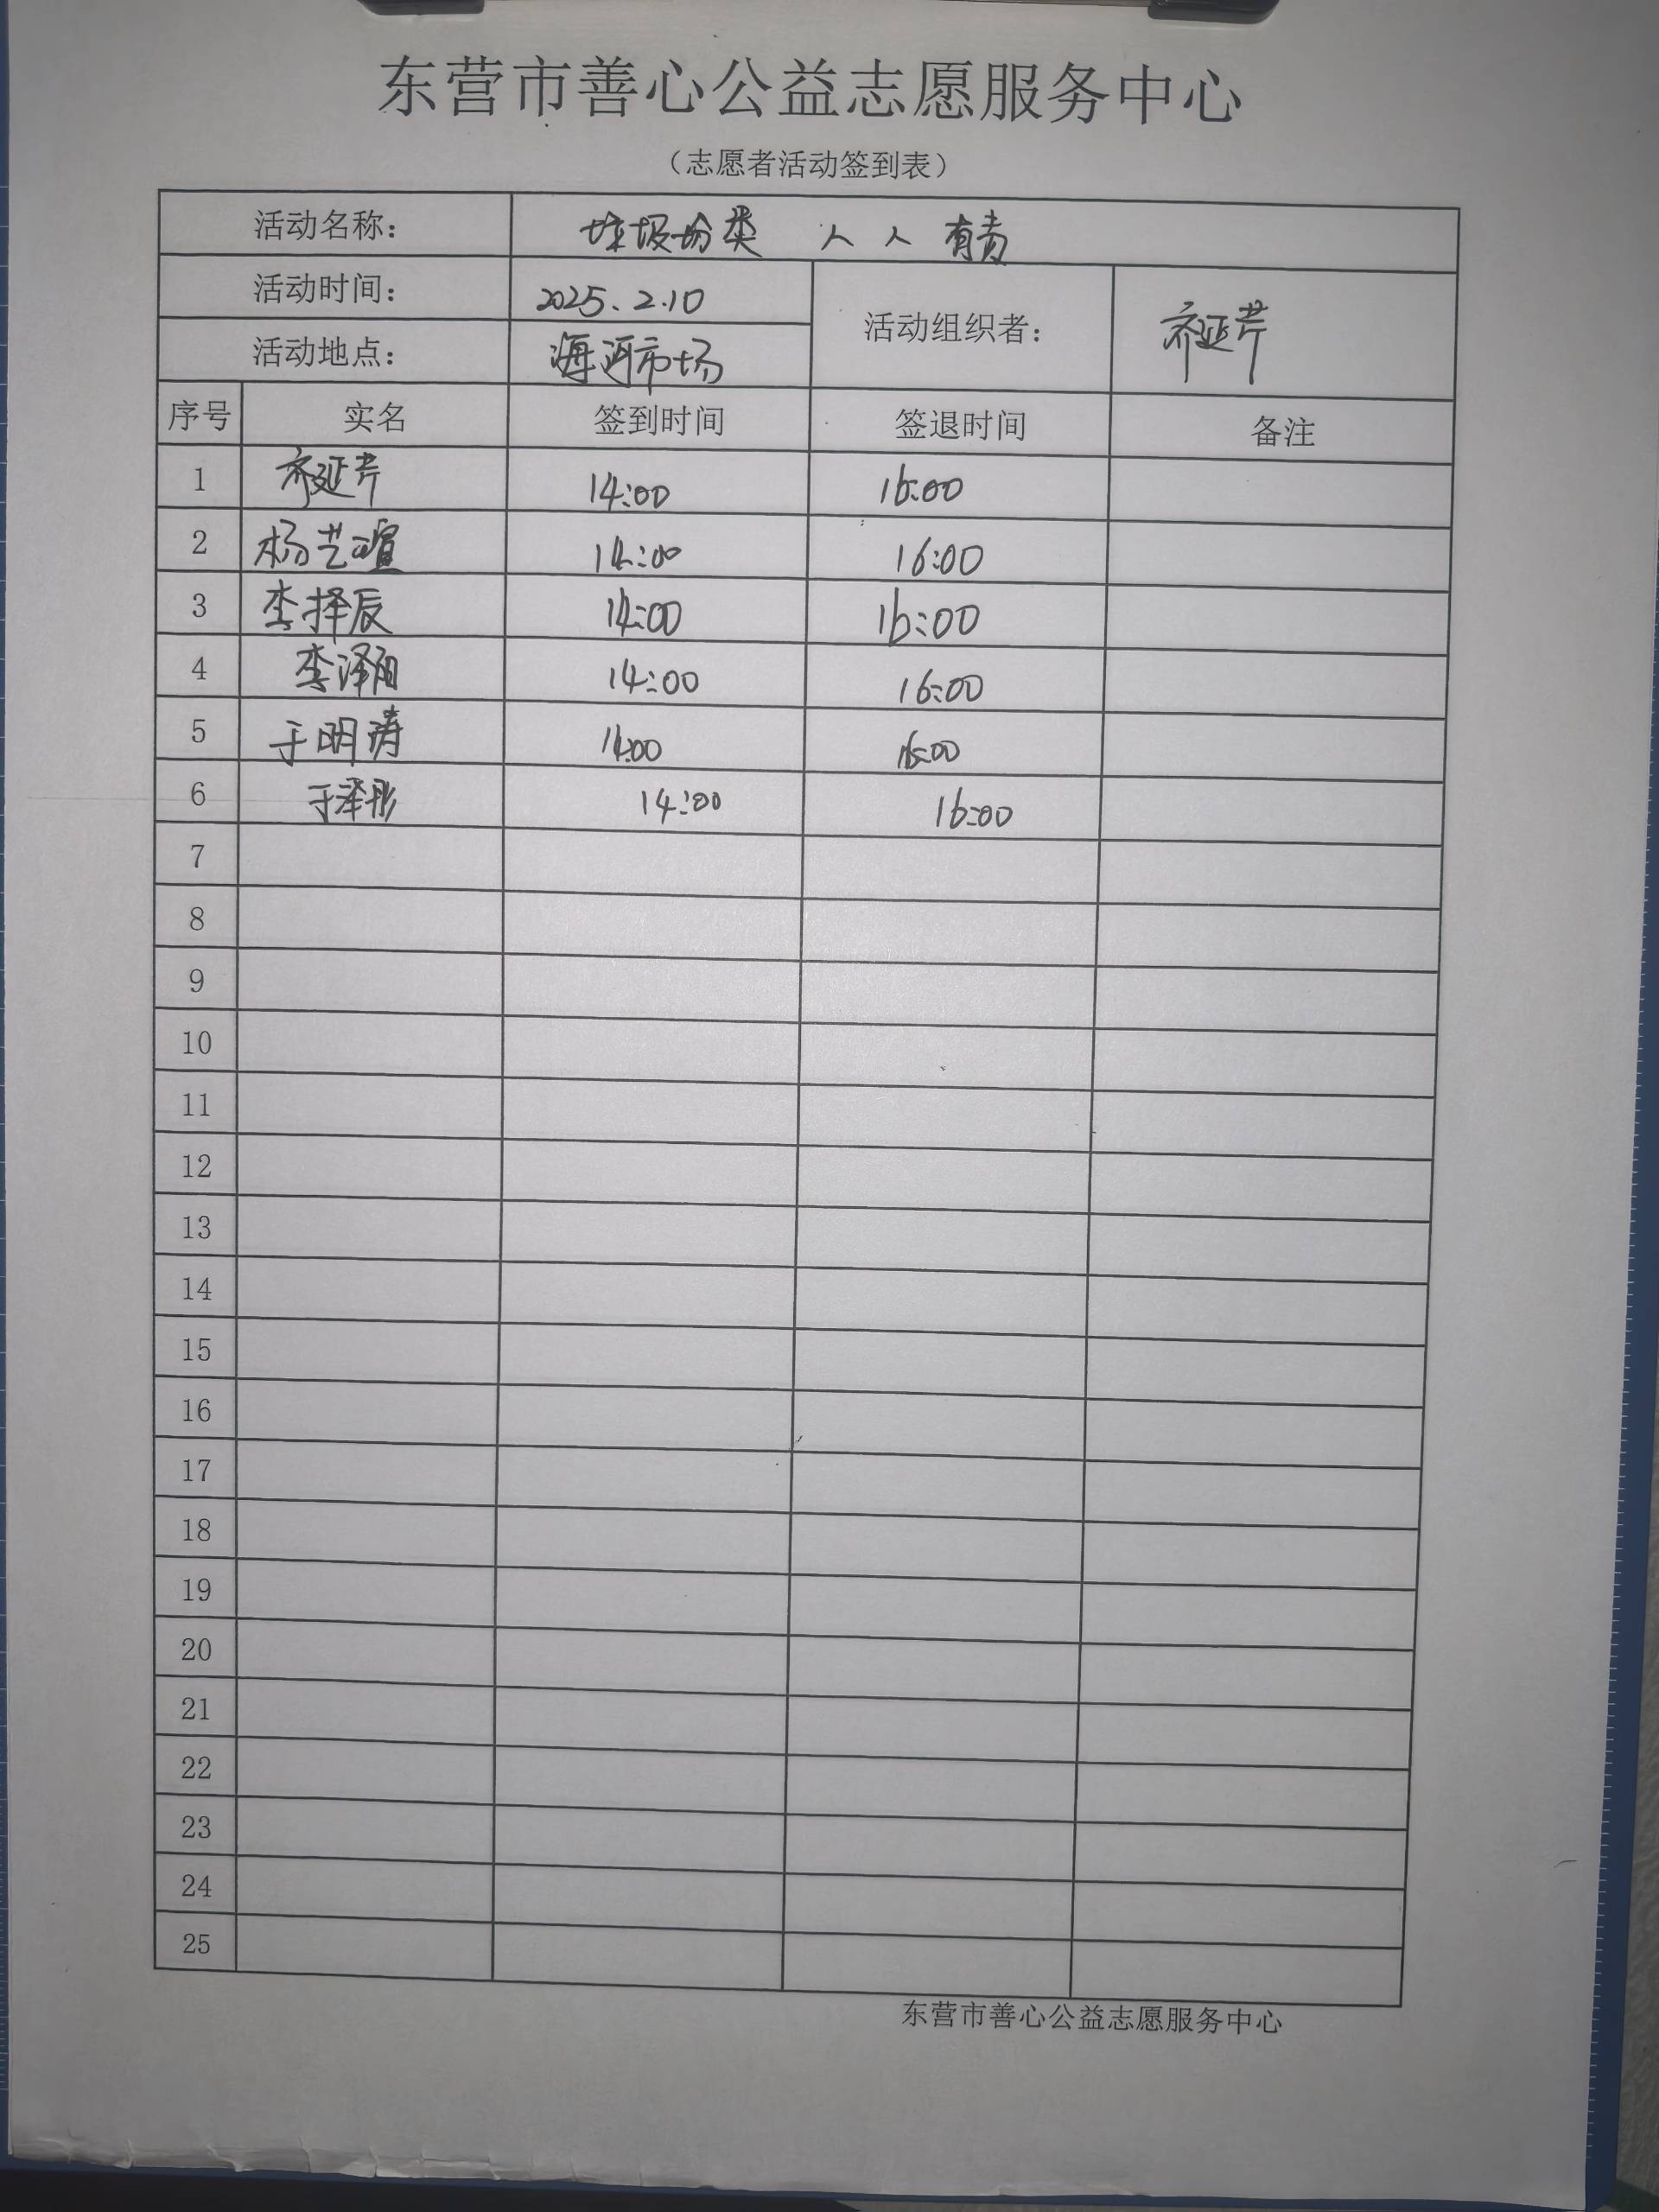 东营市善心公益志愿服务中心
（志愿者活动签到表）
活动名称： 垃圾分类 人人有责
活动时间： 2025.2.10
活动组织者： 齐延芹
活动地点： 海河市场
序号 实名 签到时间 签退时间 备注
1 齐延芹 14:00 16:00
2 杨艺瑄 14:00 16:00
3 李择辰 14:00 16:00
4 李泽阳 14:00 16:00
5 于明涛 14:00 16:00
6 于泽彤 14:00 16:00
7
8
9
10
11
12
13
14
15
16
17
18
19
20
21
22
23
24
25
东营市善心公益志愿服务中心